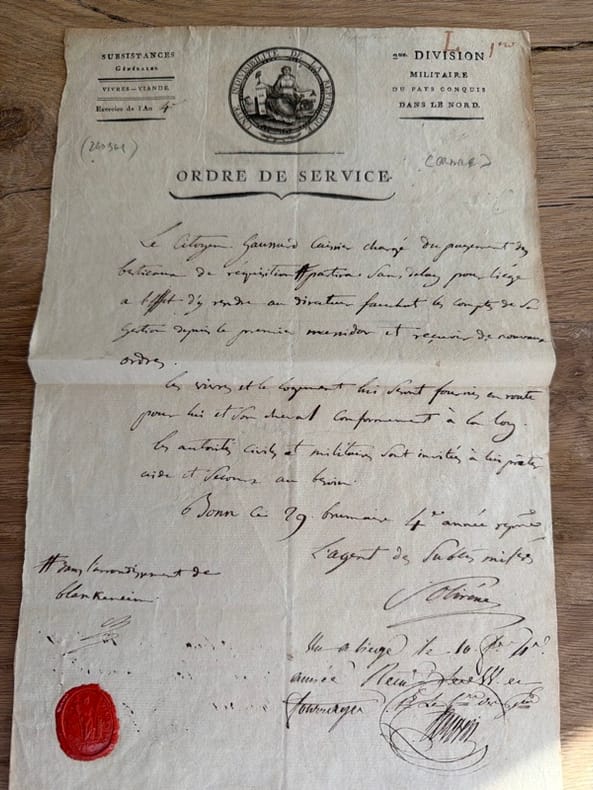 SUBSISTANCES
Générales
VIVRES-VIANDE
Exercice de l'An 4e
2me. DIVISION
MILITAIRE
DU PAYS CONQUIS
DANS LE NORD.
UNITÉ INDIVISIBILITÉ DE LA RÉPUBLIQUE
ORDRE DE SERVICE.
Le Citoyen Caissier chargé du payement des
bestiaux de réquisition # partira Sans delay pour liége
a l'effet d'y rendre au directeur les comptes de Sa
Gestion depuis le premier messidor et recevoir de nouveaux
ordres.
les vivres et le logement lui Seront fournis en route
pour lui et Son cheval Conformement à la loy.
les autorités civiles et militaires Sont invitées à lui prêter
aide et Secours au besoin.
Bonn ce 29 brumaire 4e année
L'agent des Subces milres
# dans l'arrondissement de
blankeneim
Vu a liege le 10
année